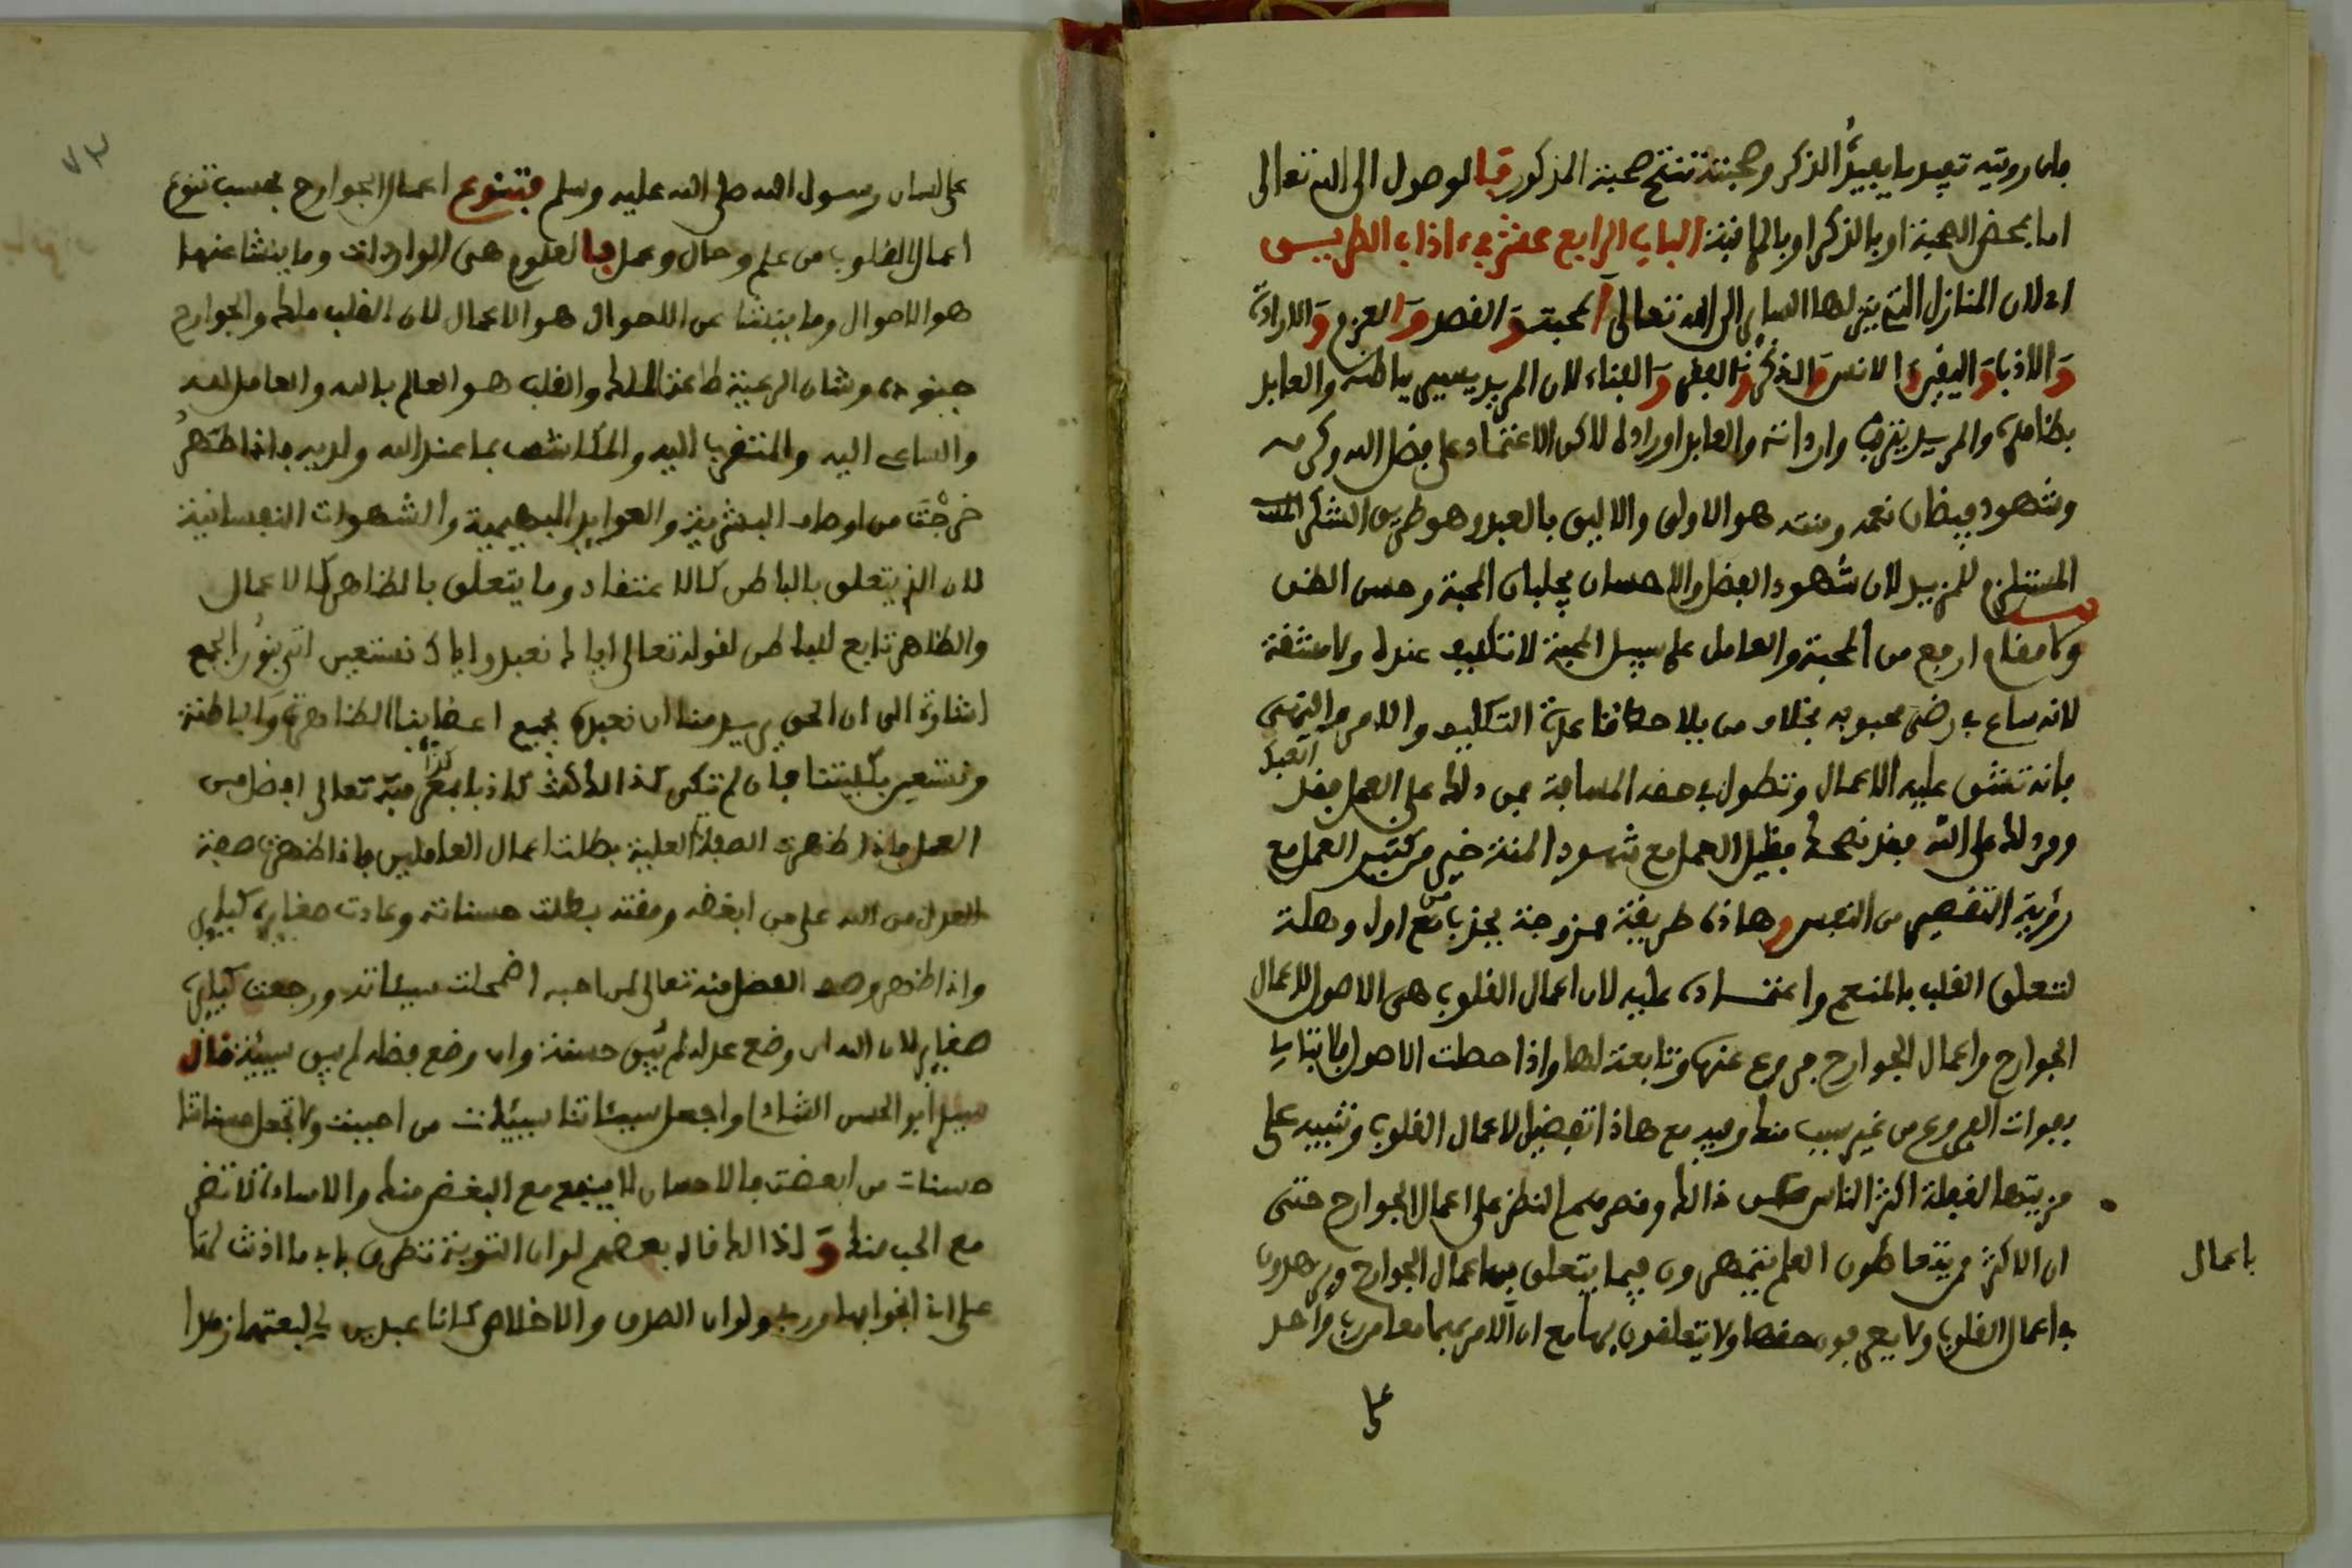 فان رويته تفيد ما يفيدُ الذكر وصحبته تنتج صحبة المذكور فبا لوصول الى الله تعالى
اما بمحض الصحبة او بالذكر او بالمراقبة الباب الرابع عشر في اداب الطريق
لان المنازل التي ينزلها الساير الى الله تعالى المحبة والقصد والعزم والارادة
والادب واليقين والانس والذكر والفقر والغناء لان المريد يسير بباطنه والعابد
بظاهره والمريد يترقب وارداته والعابد اوراده لاكن الاعتماد على فضل الله وكرمه
وشهود فيضان نعمه ومننه هو الاولى والاليق بالعبد وهو طريق الشكر
المستلزم للمزيد لان شهود الفضل والاحسان يجلبان المحبة وحسن الظن
ولا مقام ارفع من المحبة والعامل على سبيل المحبة لا تكليف عنده ولا مشقة
لانه ساع في رضى محبوبه بخلاف من يلاحظ التكليف والامر والنهي
فانه تشق عليه الاعمال وتطول في حقه المسافة فمن دلك على العمل فقد اتعبك
ومن دلك على الله فقد نصحك فقليل العمل مع شهود المنة خير من كثير العمل مع
رؤية التقصير من النفس وهاذه طريقة ممزوجة بجذب من اول وهلة
لتعلق القلب بالمنعم واعتماده عليه لان اعمال القلوب هى الاصول لاعمال
الجوارح واعمال الجوارح فروع عنها وتابعة لها واذا حصلت الاصول فلا تبال
بفوات الفروع من غير سبب منك وفيه مع هاذا تفضيل لاعمال القلوب وتنبيه على
مزيتها لغفلة اكثر الناس عن ذالك وقصرهم النظر على اعمال الجوارح حتى
ان الاكثر ممن يتعاطون العلم يتمهرون فيما يتعلق باعمال الجوارح ويزهدون
باعمال
في اعمال القلوب ولا يعرفون حقها ولا يتعلقون بها مع ان الامر بهما معا من رب واحد
على
٧٣
على لسان رسول الله صلى الله عليه وسلم فتتنوع اعمال الجوارح بحسب تنوع
اعمال القلوب من علم وحال وعمل فالعلوم هى الواردات وما ينشا عنها
هو الاحوال وما ينشا عن الاحوال هو الاعمال لان القلب ملك والجوارح
جنوده وشان الرعية طاعة الملك والقلب هو العالم بالله والعامل لله
والساعى اليه والمتقرب اليه والمكاشف بما عند الله ولديه فاذا طهر
خرجت من اوصاف البشرية والعوايد البهيمية والشهوات النفسانية
لان الذي يتعلق بالباطن كالاعتقاد وما يتعلق بالظاهر كالاعمال
والظاهر تابع للباطن لقوله تعالى اياك نعبد واياك نستعين اتى بنون الجمع
اشارة الى ان الحق يريد منا ان نعبده بجميع اعضاينا الظاهرة والباطنة
ونستعين بكليتنا فان لم تكن كذالك كنت كاذبا فعمل فيه تعالى افضل من
العمل واذا ظهرت الصفات العلية بطلت اعمال العاملين فاذا ظهرت صفة
العدل من الله على من ابغضه ومقته بطلت حسناته وعادت صغايره كباير
واذا ظهر وصف الفضل منه تعالى لمن احبه اضمحلت سيئاته ورجعت كبايره
صغاير لان الله ان وضع عدله لم تبق حسنة وان وضع فضله لم تبق سيئة قال
سيدي ابو الحسن الشاذلي واجعل سيئاتنا سيئات من احببت ولا تجعل حسناتنا
حسنات من ابغضت فالاحسان لا ينفع مع البغض منك والاساءة لا تضر
مع الحب منك ولذالك قال بعضهم لو ان التوبة تطرق بابي ما اذنت لها
على اني انجوا بها من ربي ولو ان الصدق والاخلاص كانا عبدين لي لبعتهما زهدا